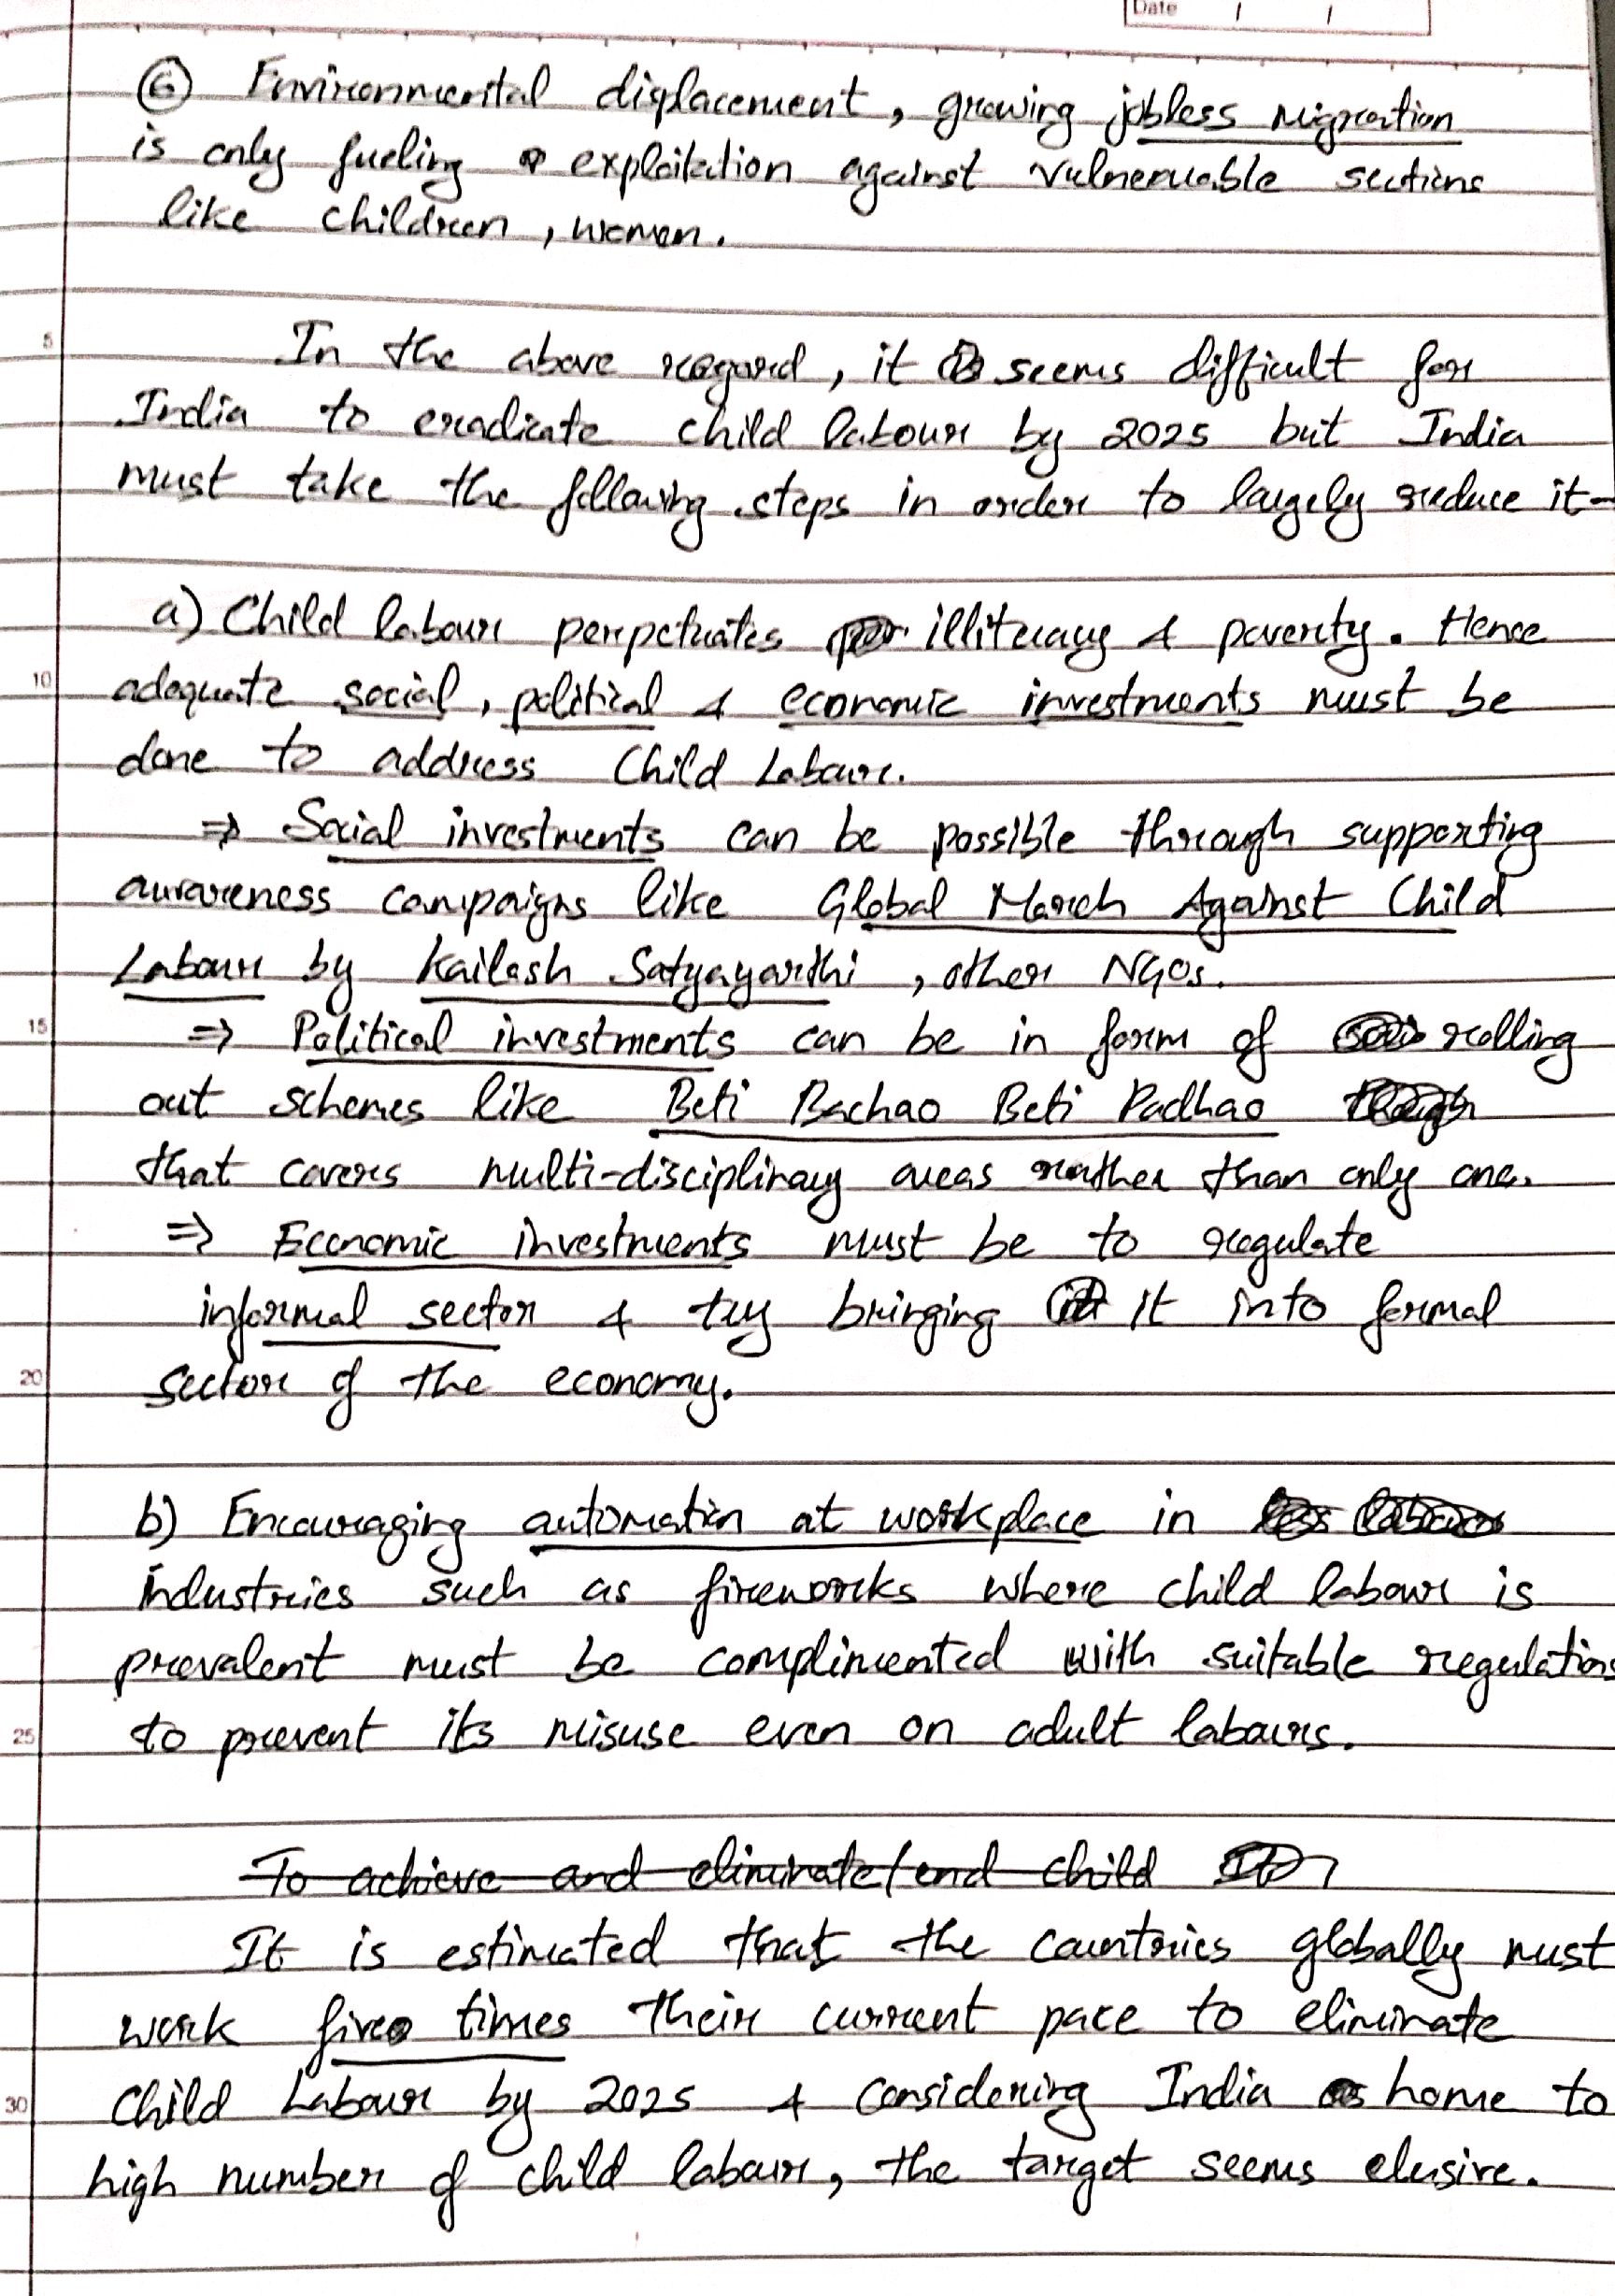 Date / /
⑥ Environmental displacement, growing jobless migration
is only fueling exploitation against vulneruable sections
like children, women.
5
In the above regard, it seems difficult for
India to eradicate child labour by 2025 but India
must take the following steps in order to largely reduce it-
a) Child labour perpetuates illiteracy & poverty. Hence
10
adequate social, political & economic investments must be
done to address Child Labour.
⇒ Social investments can be possible through supporting
awareness campaigns like Global March Against Child
Labour by Kailash Satyayarthi, other NGOs.
15
⇒ Political investments can be in form of rolling
out schemes like Beti Bachao Beti Padhao
that covers multi-disciplinary areas rather than only one.
⇒ Economic investments must be to regulate
informal sector & try bringing it into formal
20
sector of the economy.
b) Encouraging automation at workplace in
industries such as fireworks where child labour is
prevalent must be complimented with suitable regulations
25
to prevent its misuse even on adult labours.
To achieve and eliminate/end child
It is estimated that the countries globally must
work five times their current pace to eliminate
30
Child Labour by 2025 & considering India as home to
high number of child labour, the target seems elusive.